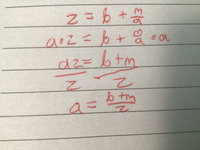 z = b + m/a
a•z = b + m/a • a
az = b+m
z z
a = b+m/z